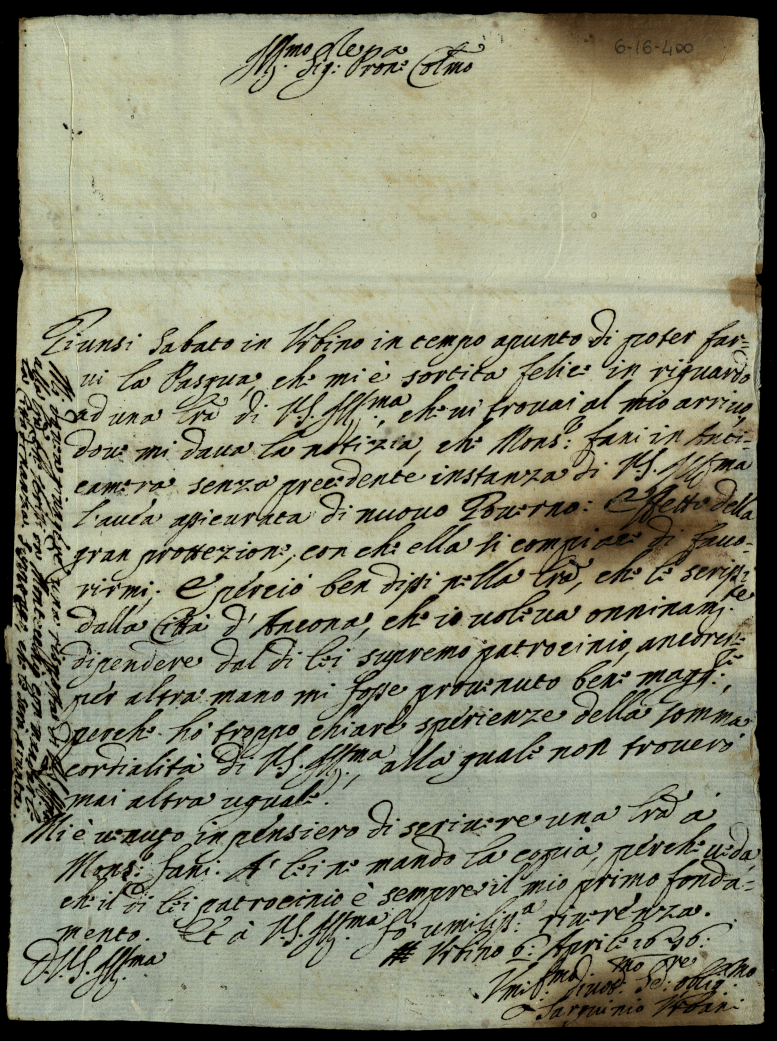 6-16-400
Ill.mo Sig.re e Pron.e Col.mo
Giunsi Sabato in Urbino in tempo apunto di poter far-
ui la Pasqua, che mi è sortita felice in riguardo
ad una Lrã di V.S. Ill.ma, che ui trouai al mio arriuo,
doue mi daua la notizia, che Mons.r fani in Anti-
camera senza precedente instanza di V.S. Ill.ma
l'auea assicurata di nuouo Gouerno: Effetto della
gran protezione, con che ella si compiace di fauo-
rirmi. E perciò ben dissi nella Lrã, che le scrissi
dalla Città d'Ancona, che io uoleua onninam.te
dipendere dal di lei supremo patrocinio, ancorche
per altra mano mi fosse prouenuto bene magg.re,
perche hò troppo chiare sperienze della somma
cordialità di V.S. Ill.ma, alla quale non trouerò
mai altra uguale.
Mi è uenuto in pensiero di scriuere una Lrã à
Mons.r fani. A' lei ne mando la copia, perche ueda,
che il di lei patrocinio è sempre il mio primo fonda-
mento. Et à V.S. Ill.ma fò umiliss.a riuerenza.
Urbino 6: Aprile 1696:
D. V.S. Ill.ma
Umil.mo Diuot.mo Se.re oblig.mo
Tarquinio Urbani